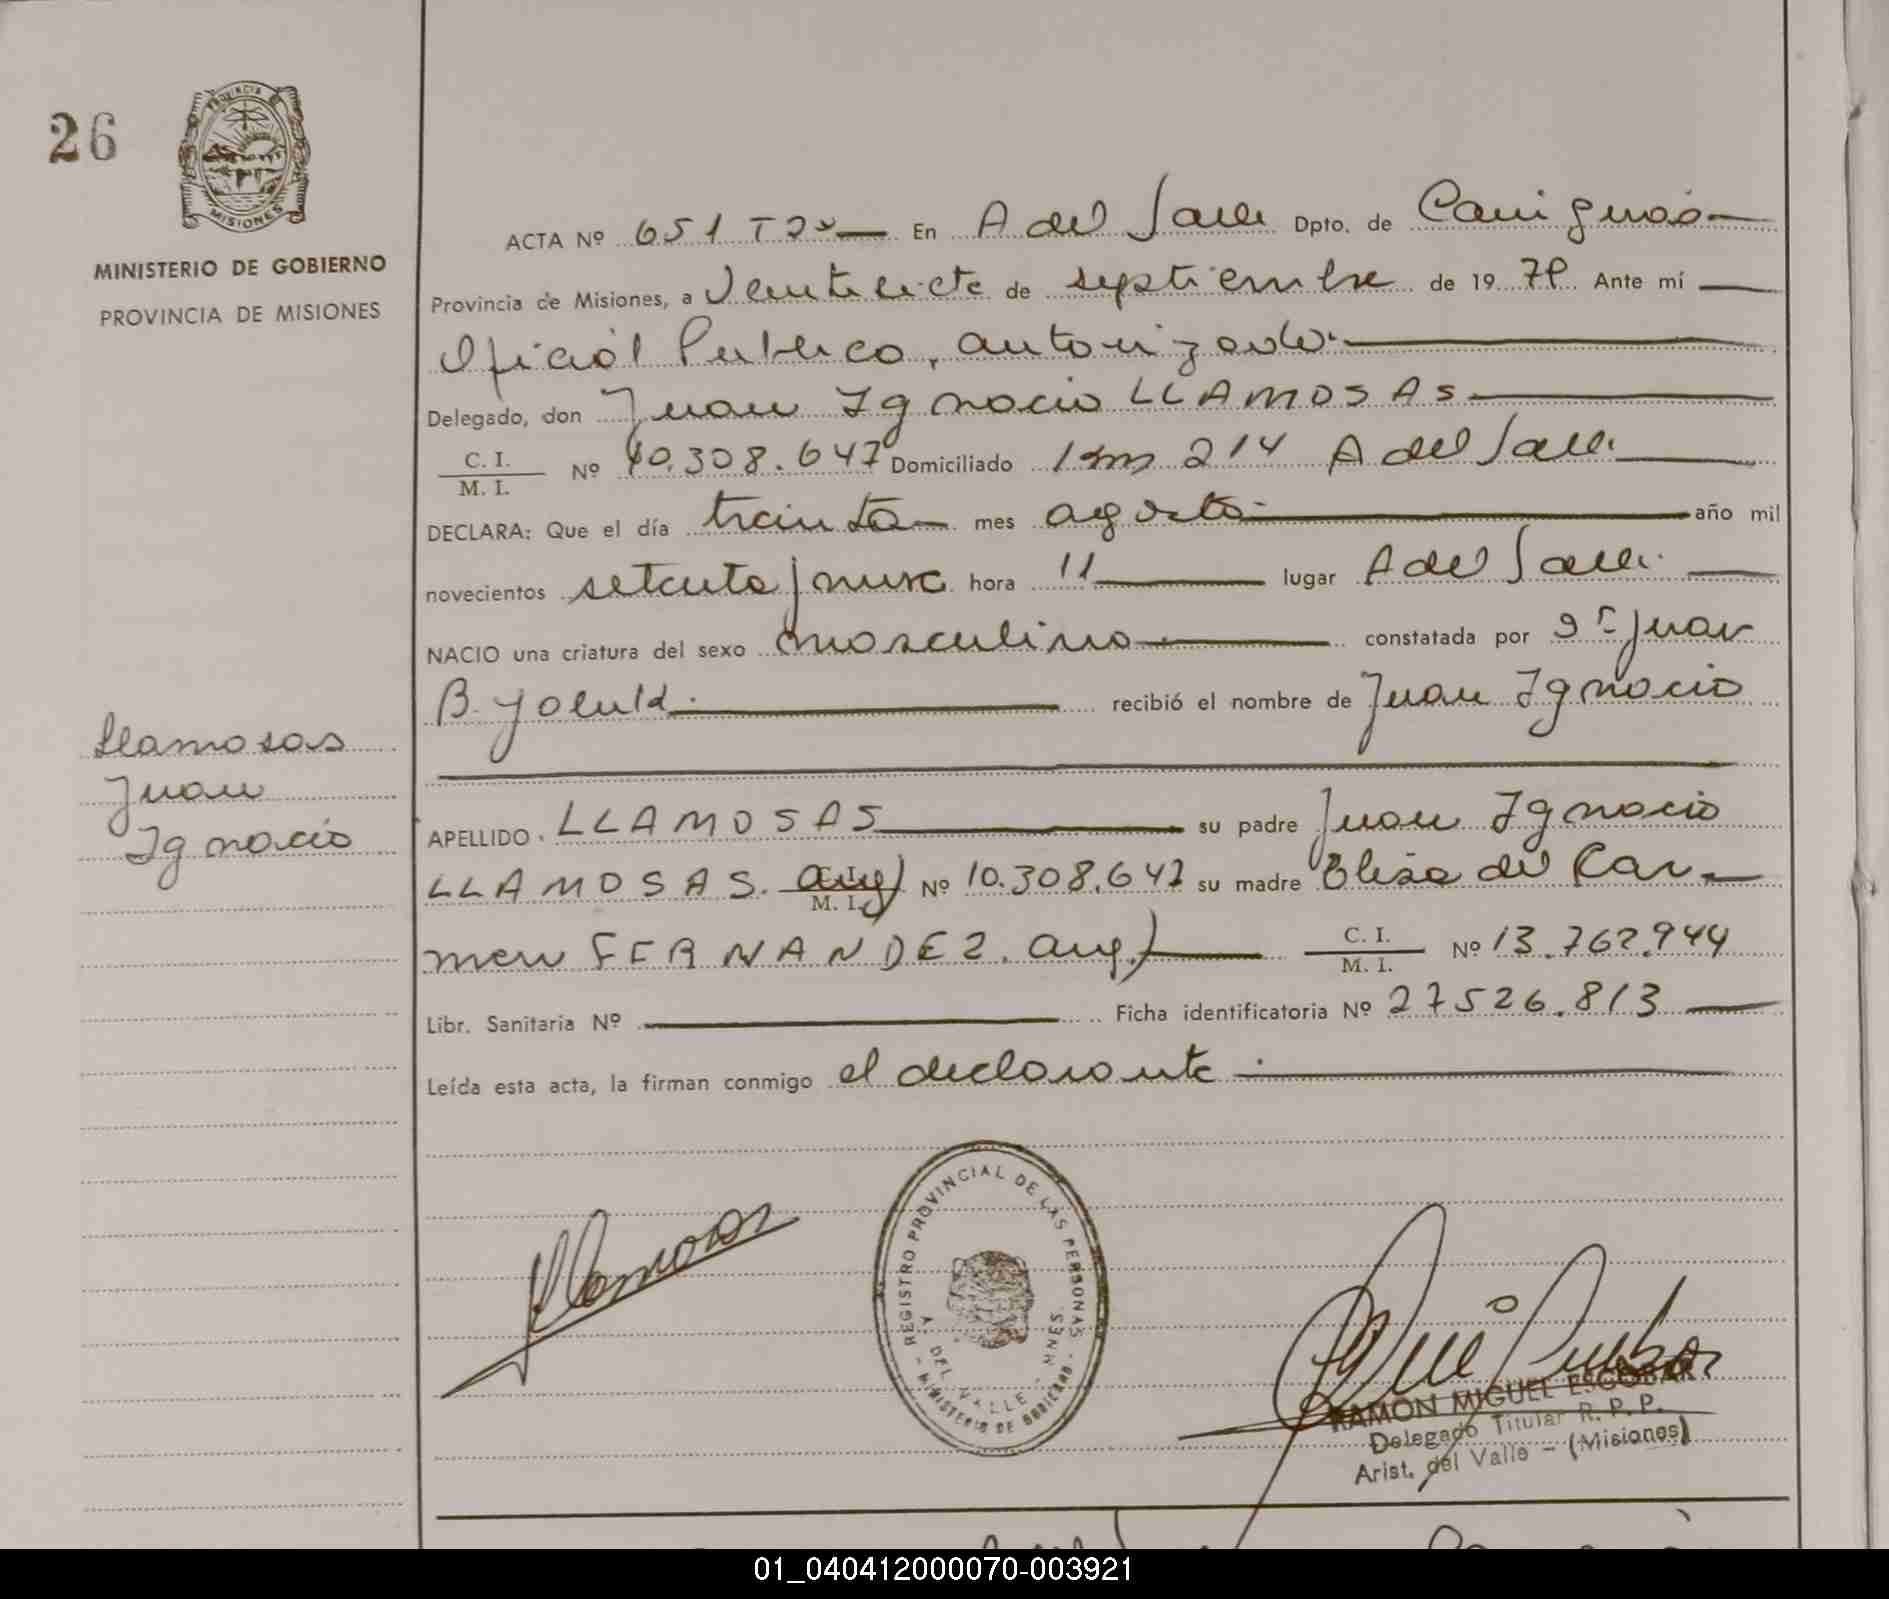 26
PROVINCIA DE
MISIONES
MINISTERIO DE GOBIERNO
PROVINCIA DE MISIONES
ACTA Nº 651 T2º En A del Valle Dpto. de Cainguás
Provincia de Misiones, a Veintisiete de septiembre de 19 79 Ante mí
Oficial Publico, autorizado.
Delegado, don Juan Ignacio LLAMOSAS
C. I.
M. I. Nº 10.308.647 Domiciliado Km 214 A del Valle.
DECLARA: Que el día treinta mes agosto año mil
novecientos setenta y nueve hora 11 lugar A del Valle.
NACIO una criatura del sexo masculino constatada por Dr Juan
B. recibió el nombre de Juan Ignacio
Llamosas
Juan
Ignacio
APELLIDO LLAMOSAS su padre Juan Ignacio
LLAMOSAS. arg) M. I. Nº 10.308.647 su madre Elisa del Car
men FERNANDEZ. arg.) C. I.
M. I. Nº 13.762.944
Libr. Sanitaria Nº Ficha identificatoria Nº 27526.813
Leída esta acta, la firman conmigo el declarante.
Llamosas
REGISTRO PROVINCIAL DE LAS PERSONAS
A. DEL VALLE - MNES.
- MINISTERIO DE GOBIERNO -
RAMON MIGUEL ESCOBAR
Delegado Titular R. P. P.
Arist. del Valle - (Misiones)
01_040412000070-003921